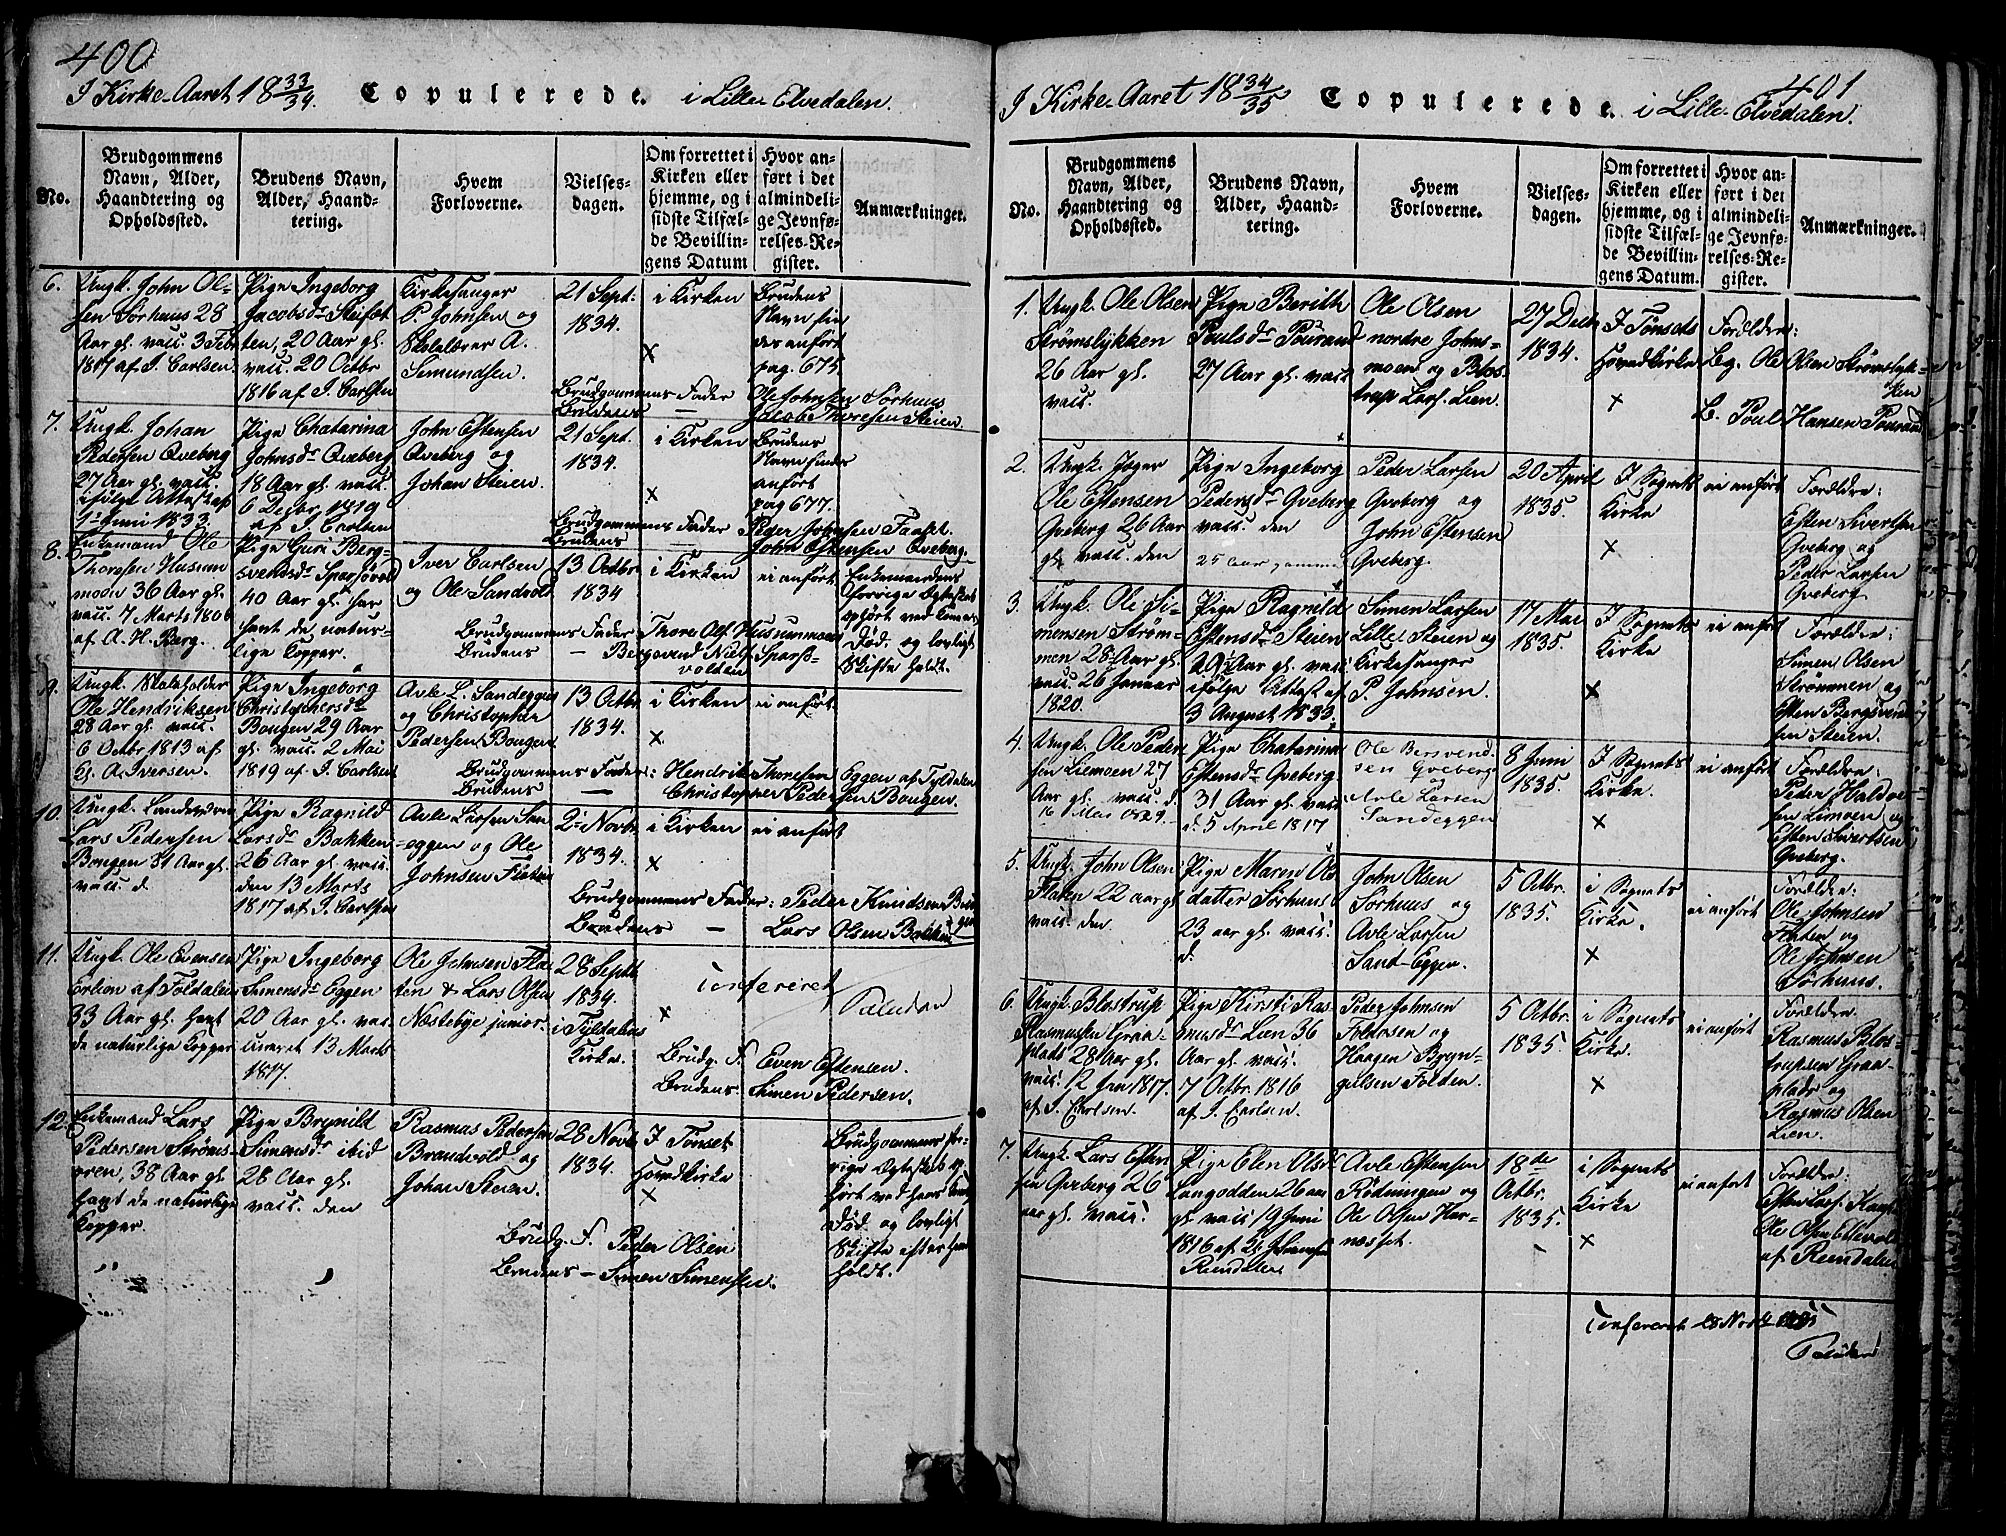 400
I Kirke-Aaret 18 33/34. Copulerede. i Lille Elvedalen.
No.
Brudgommens
Navn, Alder,
Haandtering og
Opholdssted.
Brudens Navn,
Alder, Haand-
tering.
Hvem
Forloverne.
Vielses-
dagen.
Om forrettet i
Kirken eller
hjemme, og i
sidste Tilfæl-
de Bevillin-
gens Datum
Hvor an-
ført i det
almindeli-
ge Jevnfø-
relses-Re-
gister.
Anmærkninger.
6.
Ungk. John Ol-
sen Sørhuus 28
Aar gl. vacc. 3 Febr
1817 af I. Carlsen.
Pige Ingeborg
Jacobsdr Steifet
ten, 20 Aar gl.
vacc. 20 Octbr
1816 af I. Carlsen
Kirkesanger
P. Johnsen og
Skolelærer A.
Simundsen.
21 Sept.
1834.
i Kirken
x
Brudens
Navn fin
des anført
pag. 675
Brudgommens Fader Ole Johnsen Sørhuus
Brudens — Jacob Thoresen Steien.
7.
Ungk. Johan
Pedersen Qveberg
27 Aar gl. vacc.
ifølge Attest af
1ste Juni 1833.
Pige Chatarina
Johnsdr Qveberg
18 Aar gl. vacc.
6 Decbr 1819
af I. Carlsen
John Estensen
Qveberg og
Johan Steien.
21 Sept.
1834.
i Kirken
x
Brudens
Navn findes
anført
pag 677.
Brudgommens Fader Peder Johnsen Taaset.
Brudens John Estensen Qveberg.
8.
Enkemand Ole
Thoresen Husum
moen 36 Aar gl.
vacc. 7 Marts 1806
af A. H. Berg.
Pige Guri Berg-
svendsdr Sparsøvold
40 Aar gl. har
havt de natur-
lige Kopper.
Iver Carlsen
og Ole Sandvold
13 Octbr
1834
i Kirken
ei anført.
Enkemandens
forrige Ægteskab
ophørt ved Konens
Død. og lovligt
Skifte holdt.
Brudgommens Fader Thore Olss. Husummoen
Brudens — Bergsvend Niels. Sparsø-
volden
9.
Ungk. Skoleholder
Ole Hendriksen
28 Aar gl. vacc.
6 Octbr 1813 af
A. Iversen.
Pige Ingeborg
Christophersdr
Bougen 29 Aar
gl. vacc. 2 Mai
1819 af I. Carlsen
Avle L. Sandeggen
og Christopher
Pedersen Bougen
13 Octbr
1834.
i Kirken
x
ei anført.
Brudgommens Fader: Hendrik Thoresen Eggen af Tyldalen
Brudens — Christopher Pedersen Bougen.
10.
Ungk.
Lars Pedersen
Bougen 31 Aar gl.
vacc. d.
Pige Ragnild
Larsdr Bakken
26 Aar gl. vacc.
den 13 Marts
1817 af I. Carlsen
Avle Larsen San
eggen og Ole
Johnsen Flaten
2 Novbr
1834.
i Kirken
x
ei anført
Brudgommens Fader: Peder Knudsen Bougen
Brudens — Lars Olsen Bakken
11.
Ungk. Ole Evensen
af Foldalen
33 Aar gl. havt
de naturlige Kopper
Pige Ingeborg
Simensdr Eggen
20 Aar gl. vac-
cineret 13 Marts
1817.
Ole Johnsen Fla-
ten & Lars Olsen
Nestebye junior.
28 Septb
1834.
i Tyldalens
Kirke.
x
Confereret
Paludan
Brudg. F. Even Estensen.
Brudens Simen Pedersen.
12.
Enkemand Lars
Pedersen Strøms-
øren, 38 Aar gl.
havt de naturlige
Kopper.
Pige Brynild
Simensdr ibid
28 Aar gl.
vacc. den
Rasmus Pedersen
Brandvold og
Johan Steien.
28 Novb
1834.
I Tønset
Hovedkirke
x
Brudgommens for-
rige Ægteskab op-
hørt ved hans Kones
Død. og lovligt
Skifte efter hende
holdt.
Brudg. F. Peder Olsen
Brudens — Simen Simensen.
401
I Kirke-Aaret 18 34/35 Copulerede. i Lille-Elvedalen.
No.
Brudgommens
Navn, Alder,
Haandtering og
Opholdssted.
Brudens Navn,
Alder, Haand-
tering.
Hvem
Forloverne.
Vielses-
dagen.
Om forrettet i
Kirken eller
hjemme, og i
sidste Tilfæl-
de Bevillin-
gens Datum.
Hvor an-
ført i det
almindeli-
ge Jevnfø-
relses-Re-
gister.
Anmærkninger.
1.
Ungk. Ole Olsen
Strømslykken
26 Aar gl.
vacc.
Pige Berith
Poulsdr Pouraud
27 Aar gl. vacc
Ole Olsen
nordre Johns-
moen og Blos
trup Lars. Lien.
27 Decb
1834.
I Tønsets
Hovedkirke
x
Forældre:
Bg. Ole Olsen Strømslyk-
ken
B. Poul Hansen Pouraud
2.
Ungk. Jæger
Ole Estensen
Qveberg 26 Aar
gl. vacc. den
Pige Ingeborg
Pedersdr Qveberg
vacc. den
25 aar gammel
Peder Larsen
Qveberg og
John Estensen
Qveberg.
20 April
1835.
I Sognets
Kirke
x
ei anført
Forældre:
Esten Sivertsen
Qveberg og
Peder Larsen
Qveberg.
3.
Ungk. Ole Si-
mensen Strøm-
men 28 Aar gl.
vacc. 26 Januar
1820.
Pige Ragnild
Estensdr Steien
29 Aar gl. vacc
ifølge Attest af
3 August 1833.
Simen Larsen
Lille-Steien og
Kirkesanger
P. Johnsen.
17 Mai
1835.
I Sognets
Kirke
x
ei anført
Forældre:
Simen Olsen
Strømmen og
Esten Bergsvend
sen Steien.
4.
Ungk. Ole Peder
sen Liemoen 27
Aar gl. vacc. d.
16 Mai 1829.
Pige Chatarina
Estensdr Qveberg
31 Aar gl. vacc
d. 5 April 1817
Ole Bersvend-
sen Qveberg
og
Avle Larsen
Sandeggen
8 Juni
1835.
I Sognets
Kirke.
x
ei anført
Forældre:
Peder Haldor-
sen Limoen og
Esten Sivertsen
Qveberg.
5.
Ungk. John Olsen
Flaten 22 aar gl
vacc. den
Pige Maren Ols
datter Sørhuus
23 aar gl. vacc.
d.
John Olsen
Sørhuus og
Avle Larsen
Sand-Eggen.
5 Octbr.
1835.
i Sognets
Kirke.
x
ei anført
Forældre:
Ole Johnsen
Flaten og
Ole Johnsen
Sørhuus.
6.
Ungk. Blostrup
Rasmussen Graa-
plads 28 Aar gl.
vacc. 12 Jan 1817.
af I. Carlsen.
Pige Kirsti Ras-
musdr Lien 36
Aar gl. vacc.
7 Octbr. 1816
af I. Carlsen.
Peder Johnsen
Foldøsen og
Haagen Bryn-
gulsen Folden.
5 Octbr.
1835.
i Sognets
Kirke.
x
ei anført
Forældre:
Rasmus Blos-
trupsen Graa-
plads og
Rasmus Olsen
Lien.
7.
Ungk. Lars Esten
sen Qveberg 26
aar gl. vacc.
Pige Elen Olsdr
Langodden 26 aar
gl. vacc 19 Juni
1816 af
Rendalen
Avle Estensen
Rødningen og
Ole Olsen Har-
næsset.
18de
Octbr.
1835.
i Sognets
Kirke
x
ei anført
Forældre:
Esten Lars.
Ole Olsen
af Rendalen
Confereret 28 Novb 1835
Paludan